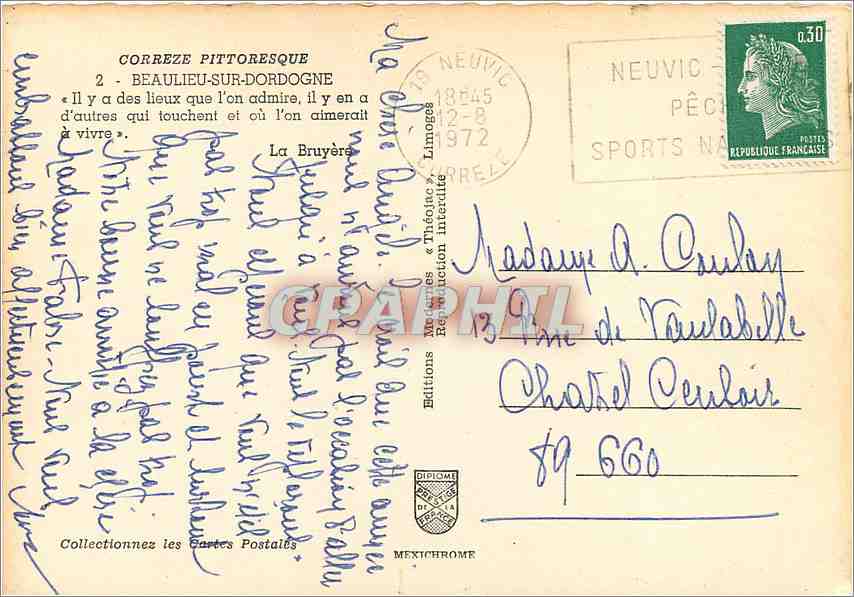 CORREZE PITTORESQUE
2 - BEAULIEU-SUR-DORDOGNE
« Il y a des lieux que l'on admire, il y en a
d'autres qui touchent et où l'on aimerait
à vivre ».
La Bruyère
19 NEUVIC
18H45
12-8
1972
CORREZE
NEUVIC -
PÊC
SPORTS NA
0,30
POSTES
REPUBLIQUE FRANÇAISE
Editions Modernes « Théojac », Limoges
Reproduction interdite
Ma Chère que cette année
nous n'aurons pas l'occasion d'aller
jusqu'à vous. Nous le
Nous que vous
pas trop mal en point et surtout
que vous ne souffrez pas trop.
Notre bonne amitié à la chère
Madame Nous vous
embrassons bien affectueusement
Madame A. Coulay
13 Rue de Vaulabelle
Chatel Censoir
89 660
CPARPHIL
DIPLOME
PRESTIGE
DE LA
FRANCE
Collectionnez les Cartes Postales
MEXICHROME